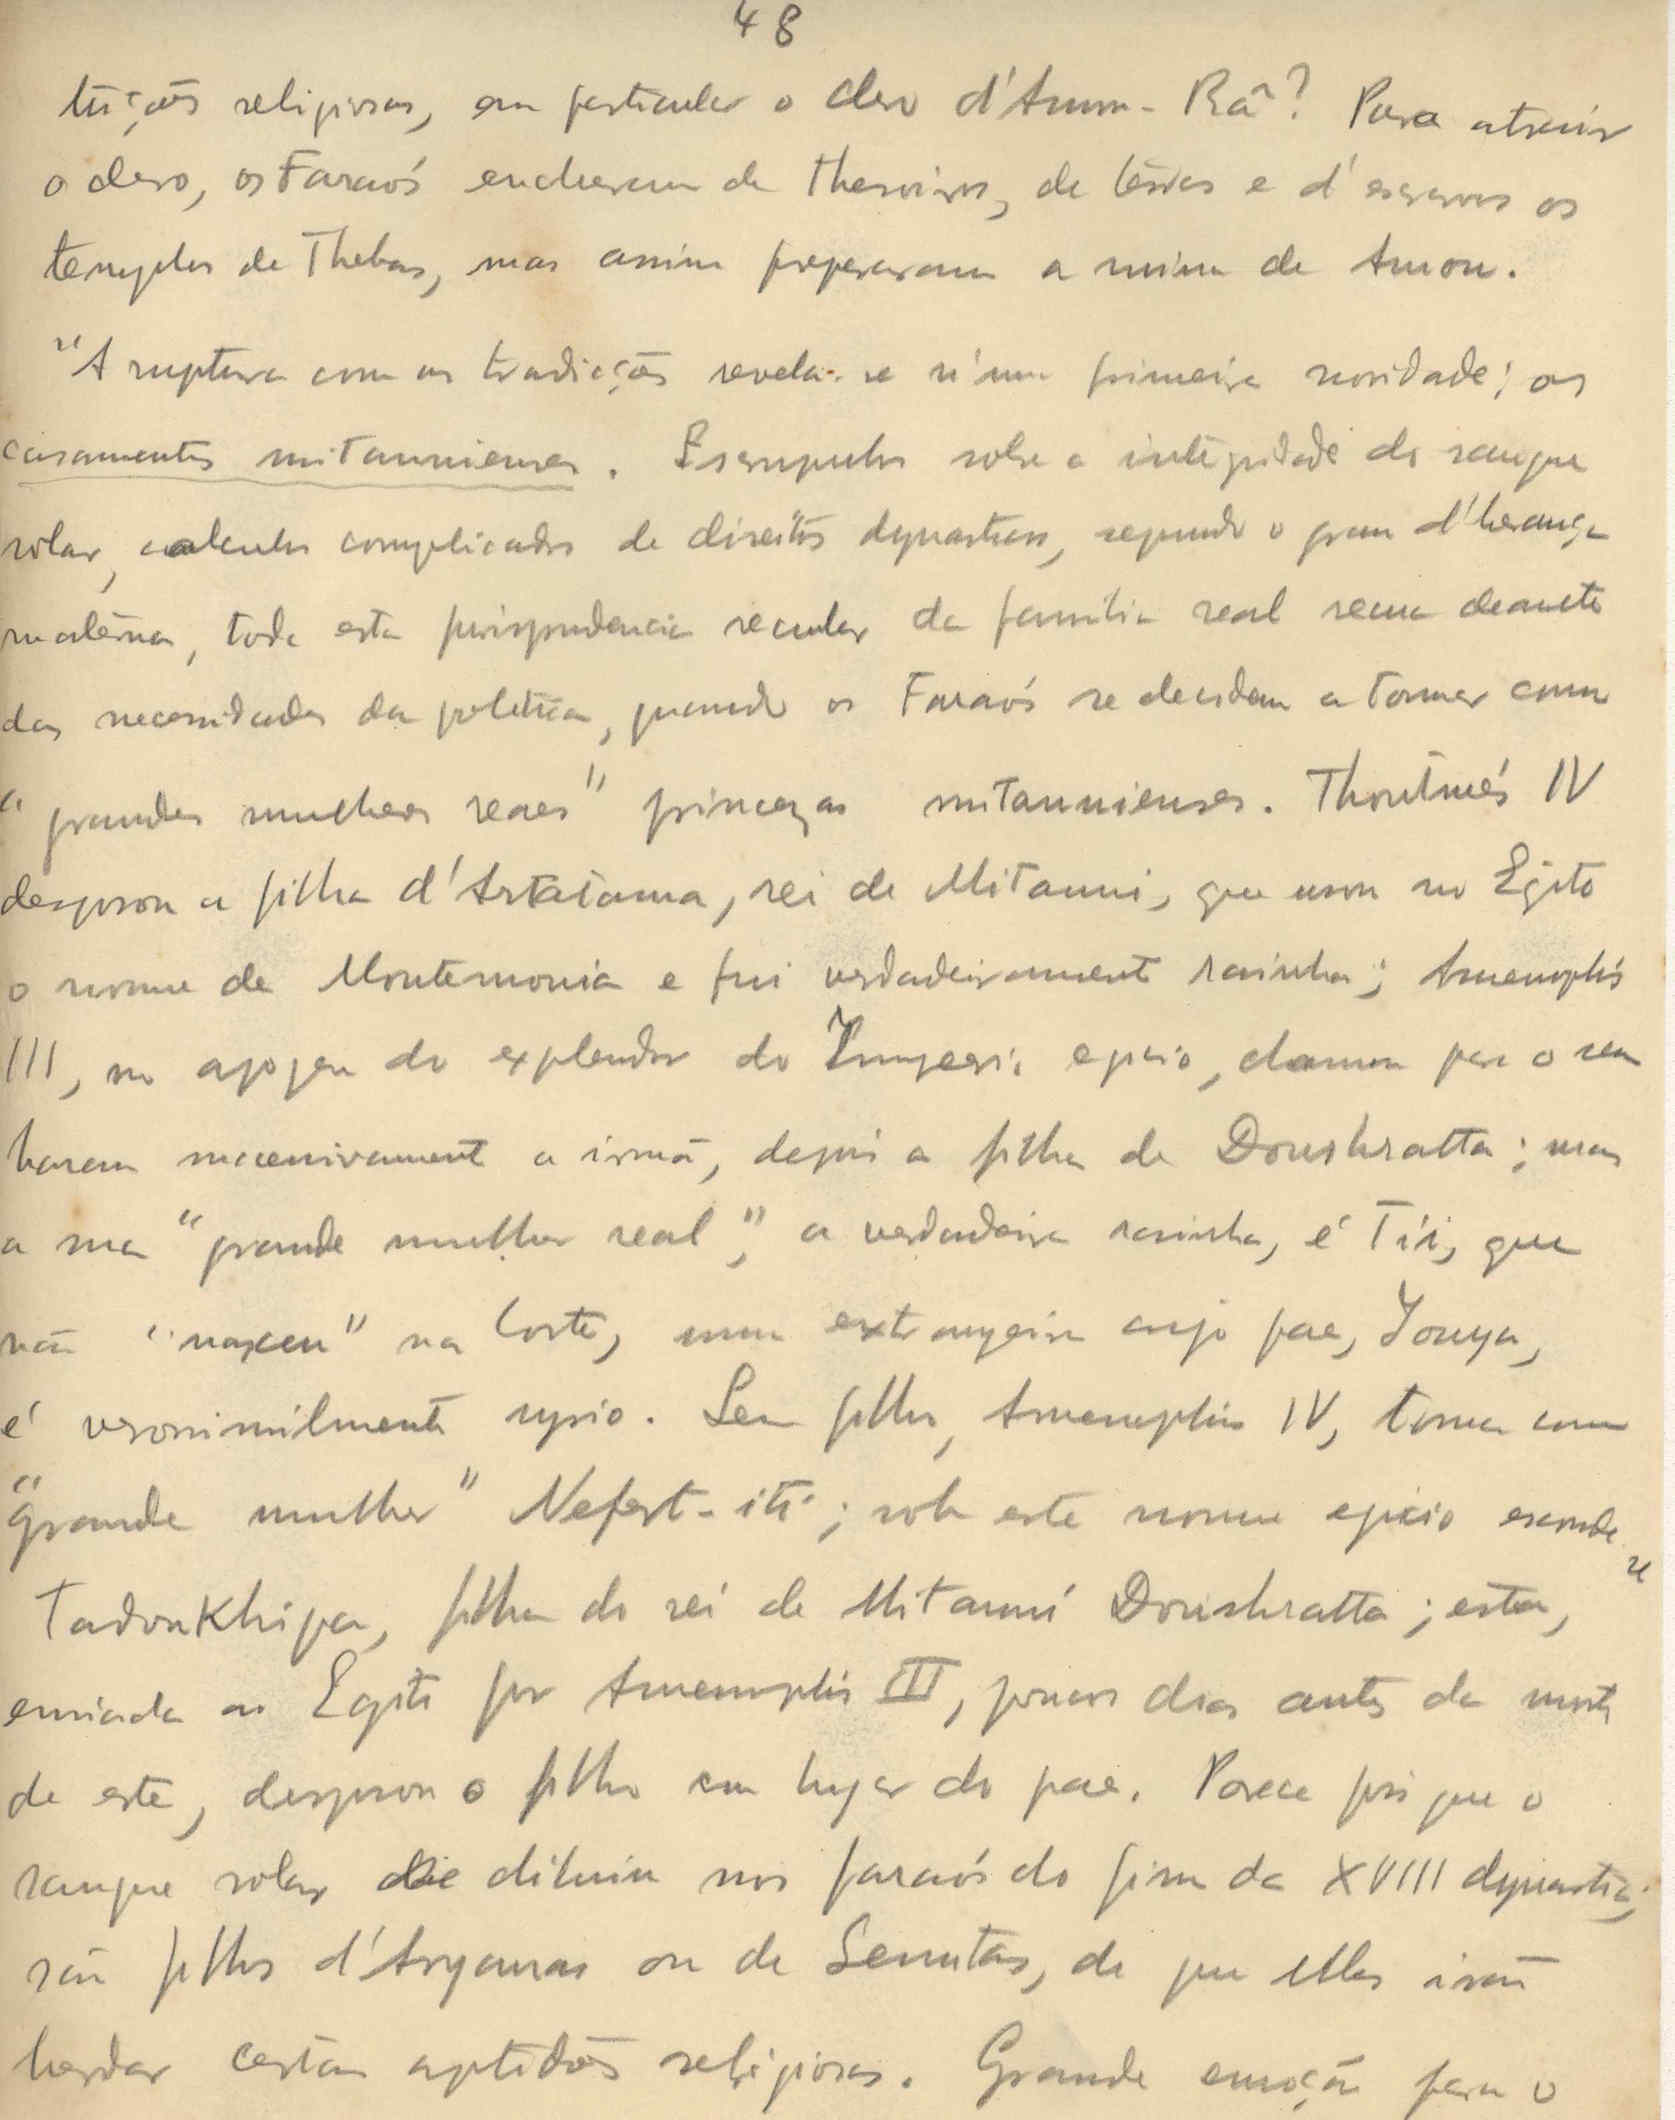 48
tuições religiosas, em particular o clero d'Amon-Râ? Para atrair
o clero, os Faraós encheram de thesoiros, de térras e d'escravos os
templos de Thebas, mas assim prepararam a ruina de Amon.
"A ruptura com as tradicções revela-se n'uma primeira novidade: os
casamentos mitannienses. Escrupulos sobre a integridade do sangue
solar, calculos complicados de direitos dynasticos, segundo o grau d'herança
materna, toda esta jurisprudencia secular da familia real recua deante
das necessidades da politica, quando os Faraós se decidem a tomar como
"grandes mulheres reaes" princezas mitannienses. Thoutmés IV
desposou a filha d'Artatama, rei de Mitanni, que usou no Egito
o nome de Moutemouia e foi verdadeiramente rainha; Amenophis
III, no apogeu do explendor do Imperio egicio, chamou para o seu
harem successivamente a irmã, depois a filha de Doushratta; mas
a sua "grande mulher real", a verdadeira rainha, é Tii, que
não "nasceu" na Corte, uma extrangeira cujo pae, Iouya,
é verosimilmente syrio. Seu filho, Amenophis IV, toma como
"grande mulher" Nefert-iti; sob este nome egicio esconde-se
Tadoukhipa, filha do rei de Mitanni Doushratta; esta,
enviada ao Egito por Amenophis III, poucos dias antes da morte
de este, desposou o filho em lugar do pae. Parece pois que o
sangue solar se diluiu nos faraós do fim da XVIII dynastia;
são filhos d'Aryanas ou de Semitas, de que elles irão
herdar certas aptidões religiosas. Grande emoção para o